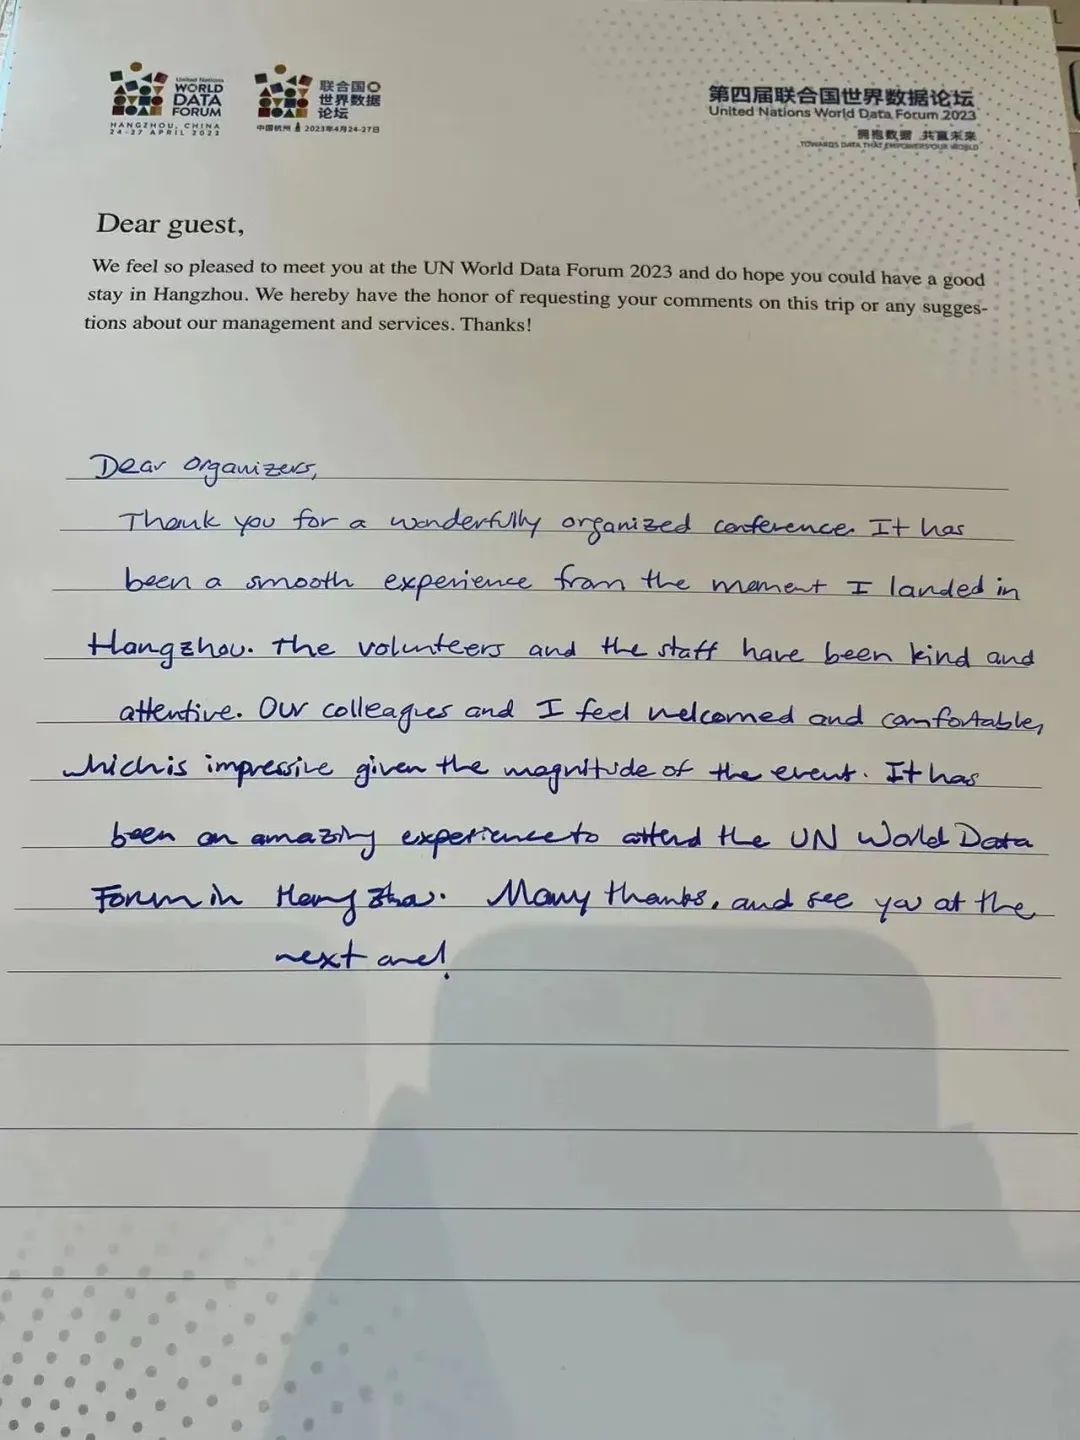 United Nations
WORLD
DATA
FORUM
HANGZHOU, CHINA
24-27 APRIL 2023
联合国
世界数据
论坛
中国杭州 2023年4月24-27日
第四届联合国世界数据论坛
United Nations World Data Forum 2023
拥抱数据 共赢未来
TOWARDS DATA THAT EMPOWERS OUR WORLD
Dear guest,
We feel so pleased to meet you at the UN World Data Forum 2023 and do hope you could have a good
stay in Hangzhou. We hereby have the honor of requesting your comments on this trip or any sugges-
tions about our management and services. Thanks!
Dear organizers,
Thank you for a wonderfully organized conference. It has
been a smooth experience from the moment I landed in
Hangzhou. The volunteers and the staff have been kind and
attentive. Our colleagues and I feel welcomed and comfortable,
which is impressive given the magnitude of the event. It has
been an amazing experience to attend the UN World Data
Forum in Hangzhou. Many thanks, and see you at the
next